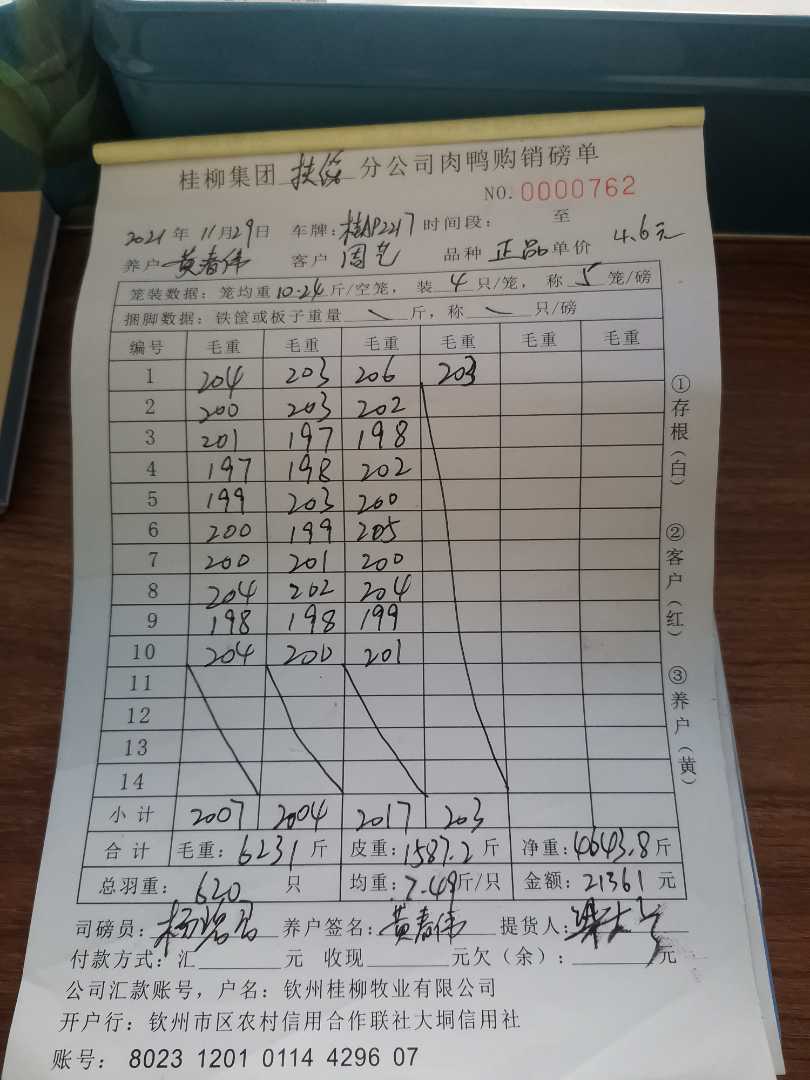 桂柳集团 扶绥 分公司肉鸭购销磅单
NO.0000762
2021年11月29日 车牌:桂AP2217 时间段: 至
养户 黄春伟 客户 周艺 品种 正品 单价 4.6元
笼装数据: 笼均重10.24斤/空笼, 装 4 只/笼, 称 5 笼/磅
捆脚数据: 铁筐或板子重量 \ 斤, 称 \ 只/磅
编号 毛重 毛重 毛重 毛重 毛重 毛重
1 204 203 206 203
2 200 203 202
3 201 197 198
4 197 198 202
5 199 203 200
6 200 199 205
7 200 201 200
8 204 202 204
9 198 198 199
10 204 200 201
11
12
13
14
小计 2007 2004 2017 203
合计 毛重:6231斤 皮重:1587.2斤 净重:4643.8斤
总羽重: 620 只 均重:7.49斤/只 金额:21361元
司磅员: 养户签名:黄春伟 提货人:
付款方式:汇 元 收现 元欠(余): 元
公司汇款账号,户名: 钦州桂柳牧业有限公司
开户行: 钦州市区农村信用合作联社大垌信用社
账号: 8023 1201 0114 4296 07
①存根(白)
②客户(红)
③养户(黄)